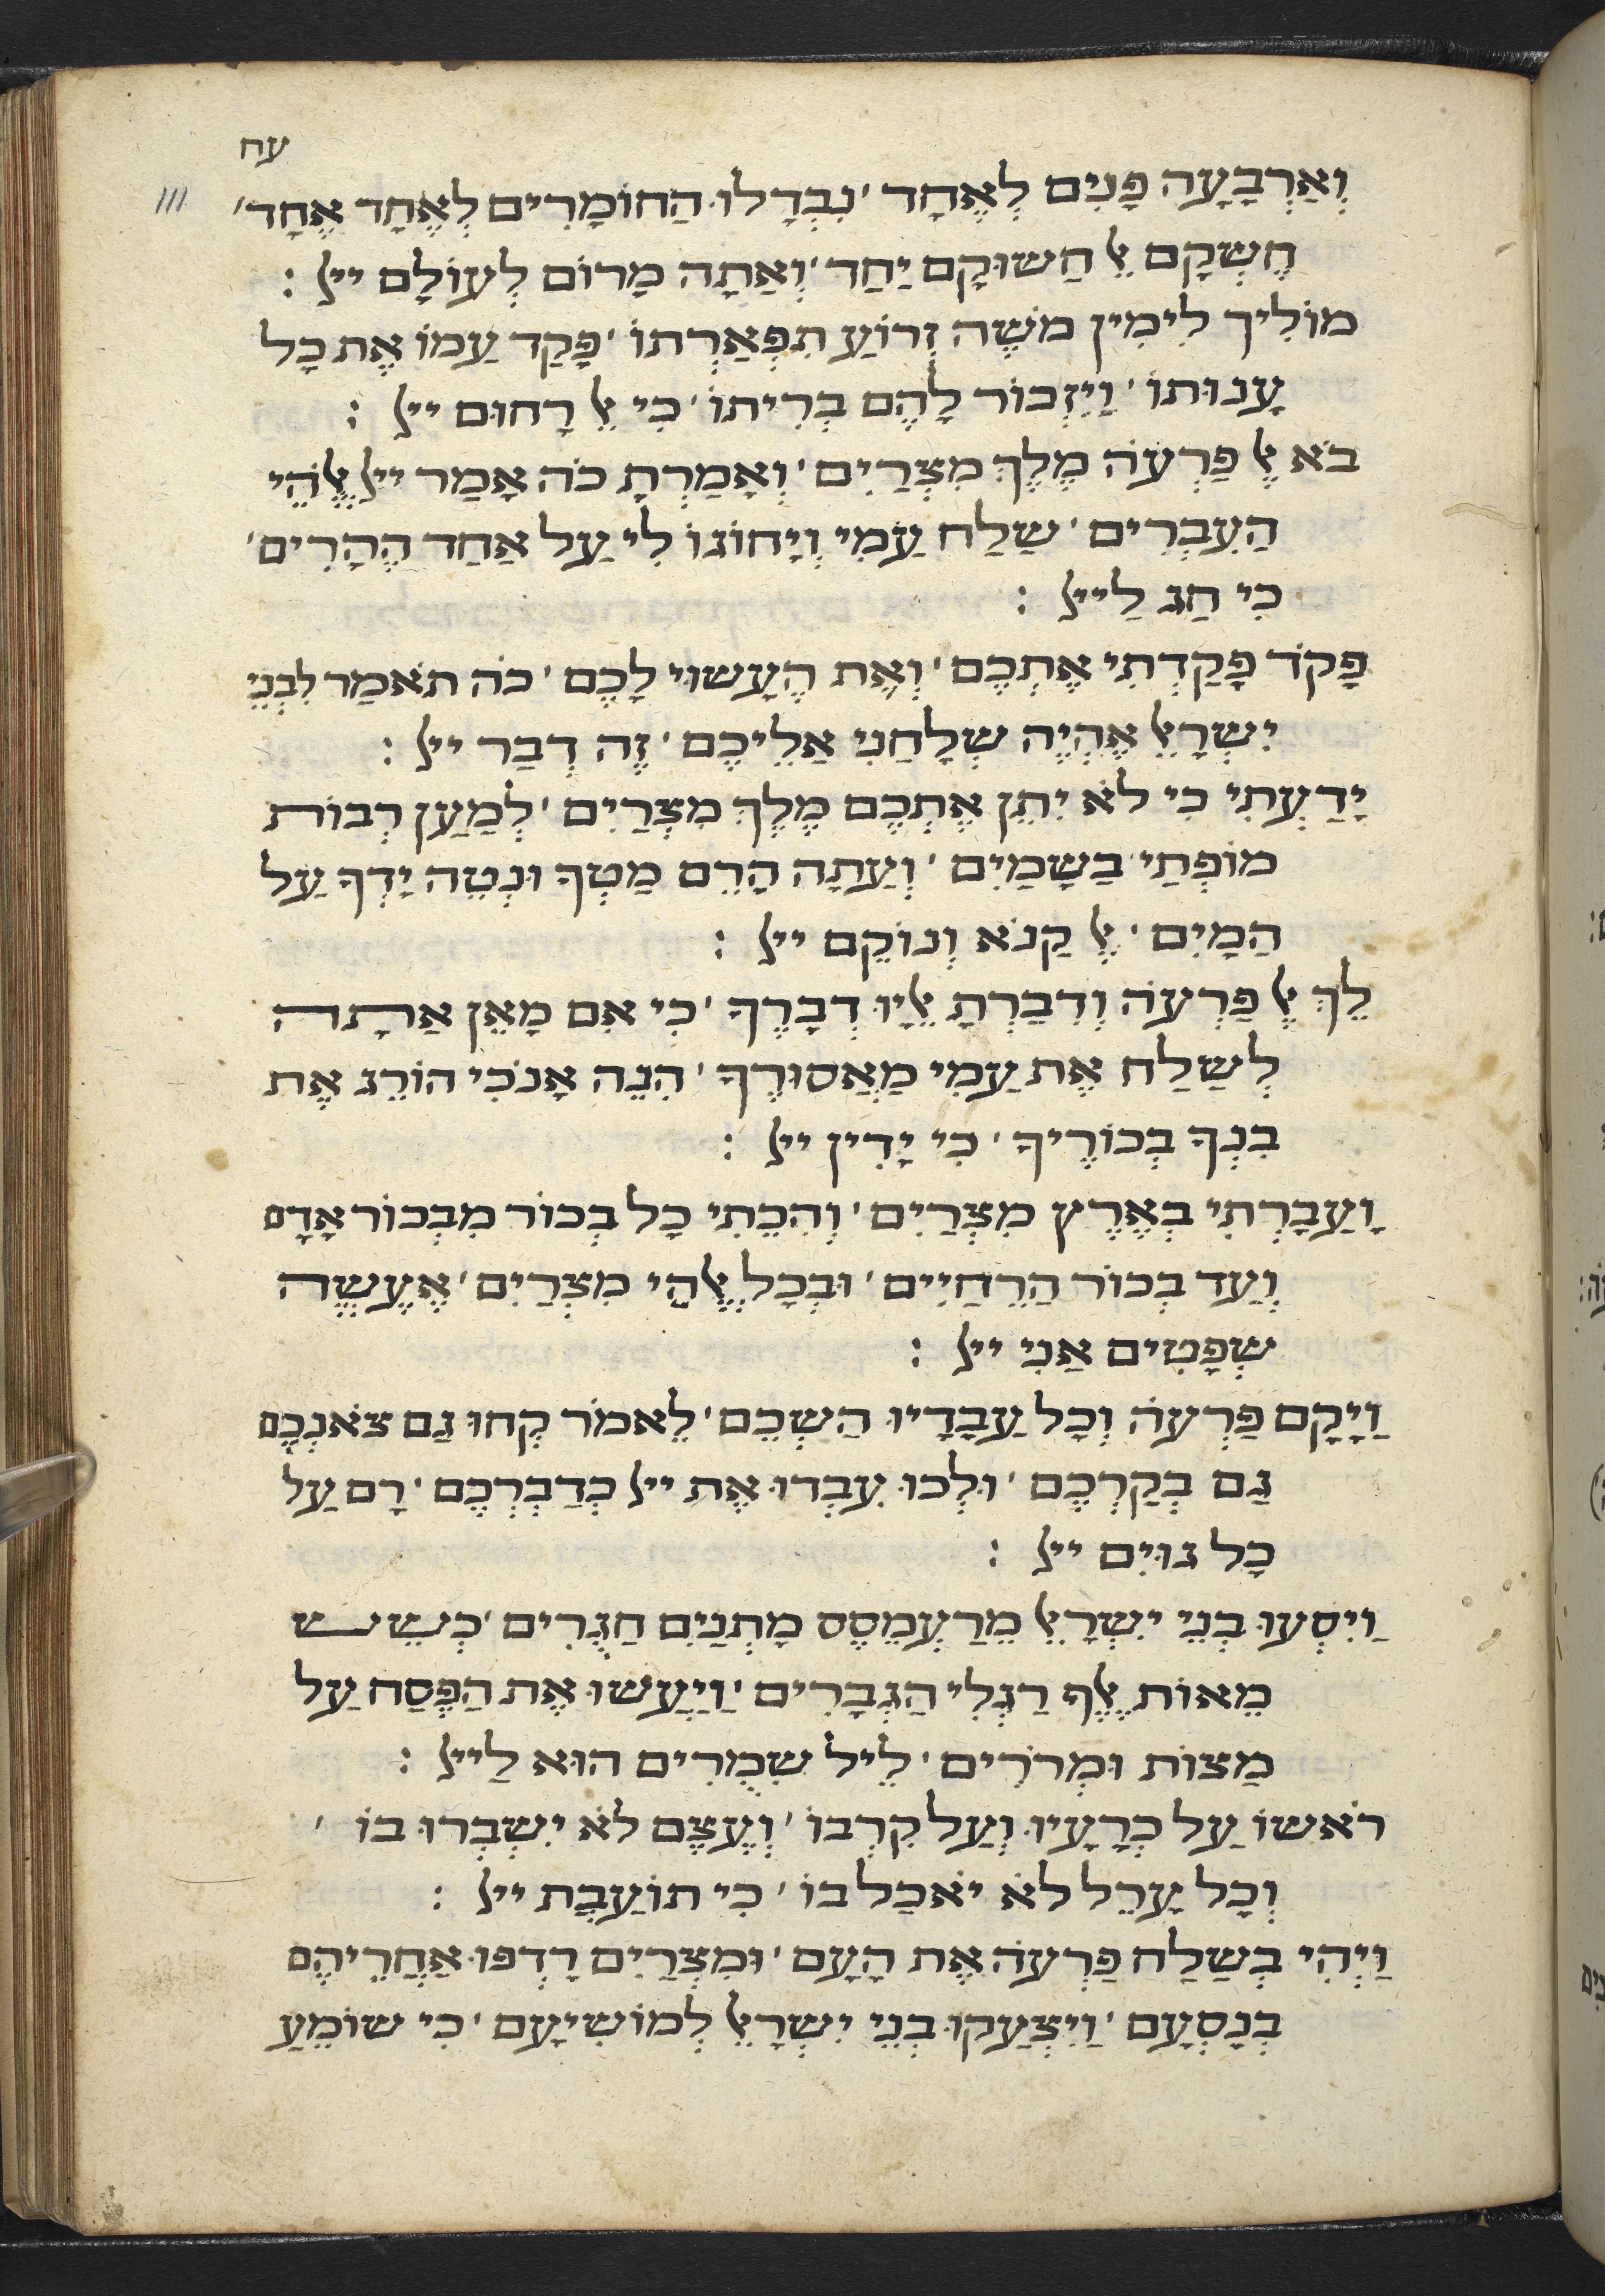 עח
111
וְאַרְבָעָה פָנִים לְאֶחָד ׳ נִבְדָלוּ הַחוֹמָרִים לְאֶחָד אֶחָד ׳
חֶשְקָם אֵל חַשוּקָם יַחַד ׳ וְאַתָה מָרוֹם לְעוֹלָם ייל :
מוֹלִיךְ לִימִין מֹשֶה זְרוֹעַ תִפְאַרְתוֹ ׳ פָקַד עַמוֹ אֶת כָל
עָנוּתוֹ ׳ וַיִזְכוֹר לָהֶם בְרִיתוֹ ׳ כִי אֵל רָחוּם ייל :
בֹא אֶל פַרְעֹה מֶלֶךְ מִצְרַיִם ׳ וְאָמַרְתָ כֹה אָמַר ייל אֱלֹהֵי
הַעִבְרִים ׳ שַלַח עַמִי וְיָחוֹגוּ לִי עַל אַחַד הֶהָרִים ׳
כִי חַג לַייל :
פָקֹד פָקַדְתִי אֶתְכֶם ׳ וְאֶת הֶעָשוּי לָכֶם ׳ כֹה תֹאמַר לִבְנֵי
יִשְרָאֵל אֶהְיֶה שְלָחַנִי אֲלֵיכֶם ׳ זֶה דְבַר ייל :
יָדַעְתִי כִי לֹא יִתֵן אֶתְכֶם מֶלֶךְ מִצְרַיִם ׳ לְמַעַן רְבוֹת
מוֹפְתַי בַשָמַיִם ׳ וְעַתָה הָרֵם מַטְךָ וּנְטֵה יַדְךָ עַל
הַמָיִם ׳ אֵל קַנֹא וְנוֹקֵם ייל :
לֵךְ אֶל פַרְעֹה וְדִבַרְתָ אֵלָיו דְבָרֶךָ ׳ כִי אִם מָאֵן אַתָה
לְשַלַח אֶת עַמִי מַאֲסוּרֶךָ ׳ הִנֵה אָנֹכִי הוֹרֵג אֶת
בִנְךָ בְכוֹרֶיךָ ׳ כִי יָדִין ייל :
וְעַבָרְתִי בְאֶרֶץ מִצְרַיִם ׳ וְהִכֵתִי כָל בְכוֹר מִבְכוֹר אָדָם
וְעַד בְכוֹר הַרֵחַיִים ׳ וּבְכָל אֱלֹהֵי מִצְרַיִם ׳ אֶעֱשֶה
שְפָטִים אַנִי ייל :
וַיָקָם פַרְעֹה וְכָל עַבָדָיו הַשְכֵם ׳ לֵאמֹר קְחוּ גַם צֹאנְכֶם
גַם בְקַרְכֶם ׳ וּלְכוּ עִבְדוּ אֶת ייל כְדַבֶרְכֶם ׳ רָם עַל
כָל גוֹיִם ייל :
וַיִסְעוּ בְנֵי יִשְרָאֵל מֵרַעְמֵסֶס מָתְנַיִם חַגֻרִים ׳ כְשֵש
מֵאוֹת אֶלֶף רַגְלִי הַגְבָרִים ׳ וַיַעַשוּ אֶת הַפֶסַח עַל
מַצוֹת וּמְרֹרִים ׳ לֵיל שִמֻרִים הוּא לַייל :
רֹאשוֹ עַל כְרָעָיו וְעַל קִרְבוֹ ׳ וְעֶצֶם לֹא יִשְבְרוּ בוֹ ׳
וְכָל עָרֵל לֹא יֹאכַל בוֹ ׳ כִי תוֹעַבַת ייל :
וַיְהִי בְשַלַח פַרְעֹה אֶת הָעָם ׳ וּמִצְרַיִם רָדְפוּ אַחֲרֵיהֶם
בְנָסְעָם ׳ וַיִצְעַקוּ בְנֵי יִשְרָאֵל לְמוֹשִיעָם ׳ כִי שוֹמֵעַ